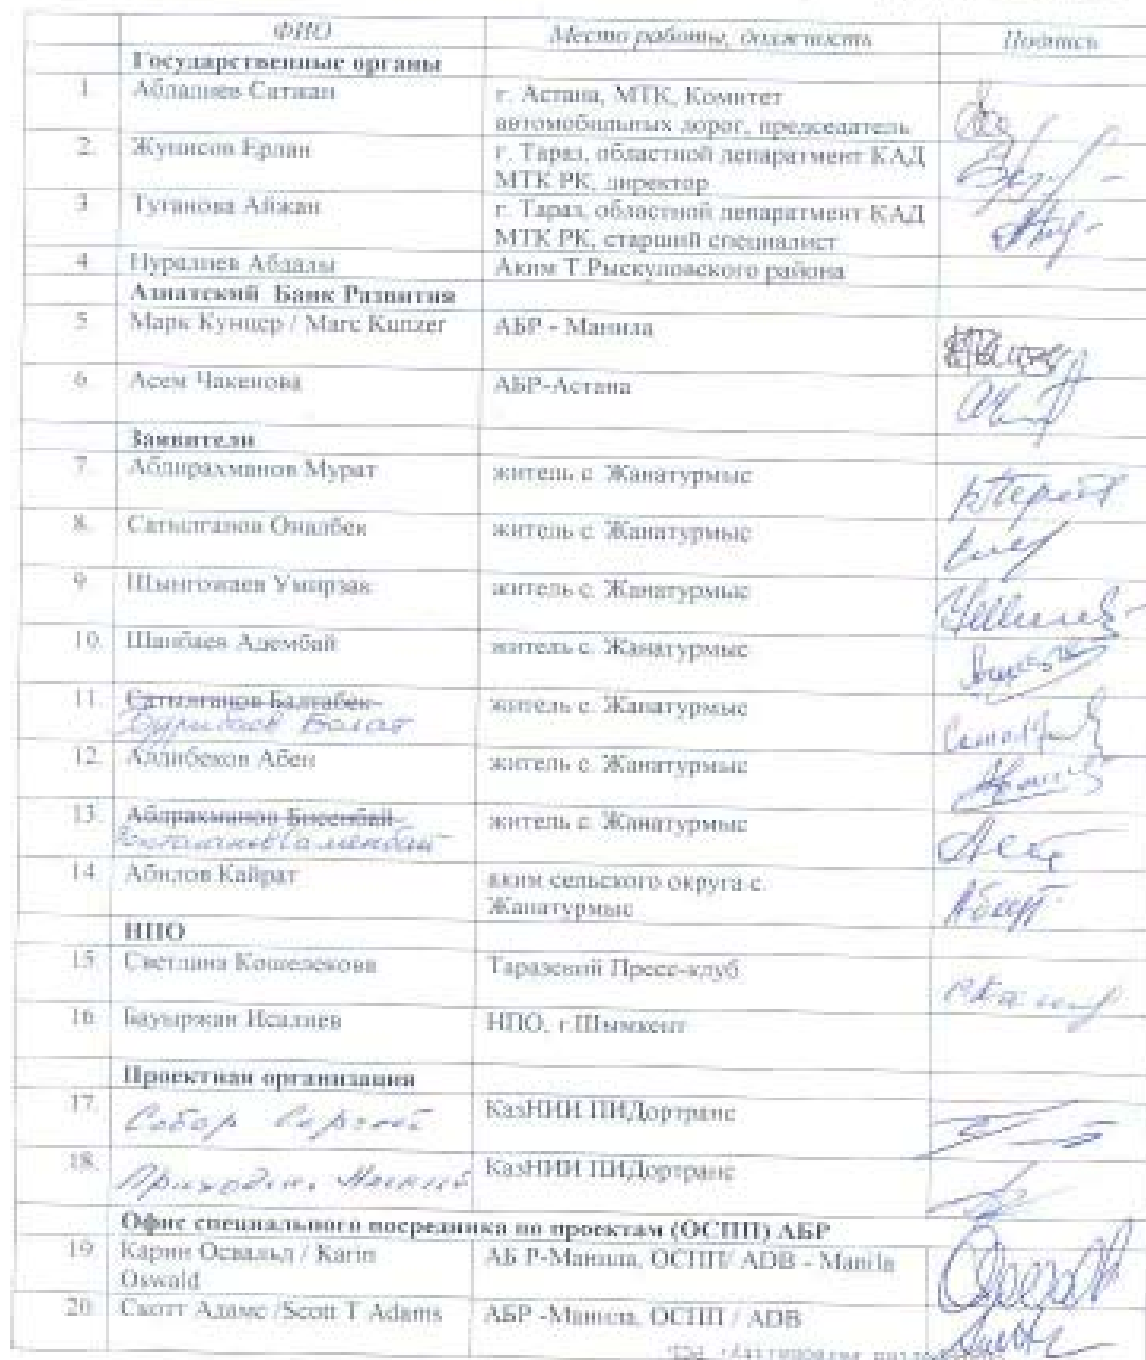 ФИО Место работы, должность Подпись
Государственные органы
1 Абдалиев Сатжан г. Астана, МТК, Комитет
автомобильных дорог, председатель
2. Жунисов Ерлан г. Тараз, областной департамент КАД
МТК РК, директор
3 Туганова Айжан г. Тараз, областной департамент КАД
МТК РК, старший специалист
4 Нуралиев Абдалы Аким Т.Рыскуловского района
Азиатский Банк Развития
5 Марк Кунцер / Marc Kunzer АБР - Манила
6. Асем Чакенова АБР-Астана
Заявители
7. Абдирахманов Мурат житель с. Жанатурмыс
8. Сатылганов Оналбек житель с. Жанатурмыс
9 Шынгожаев Умирзак житель с. Жанатурмыс
10. Шанбаев Адембай житель с. Жанатурмыс
11. Сатылганов Балтабек житель с. Жанатурмыс
Болат
12. Алдибеков Абен житель с. Жанатурмыс
13. Абдрахманов Бисенбай житель с. Жанатурмыс
14. Абилов Кайрат аким сельского округа с.
Жанатурмыс
НПО
15 Светлана Таразский Пресс-клуб
16 Бауыржан Исалиев НПО, г.Шымкент
Проектная организация
17. Собор Сергей КазНИИ ПИДортранс
18. КазНИИ ПИДортранс
Офис специального посредника по проектам (ОСПП) АБР
19 Карин Освальд / Karin АБ Р-Манила, ОСПП/ ADB - Manila
Oswald
20 Скотт Адамс /Scott T Adams АБР -Манила, ОСПП / ADB